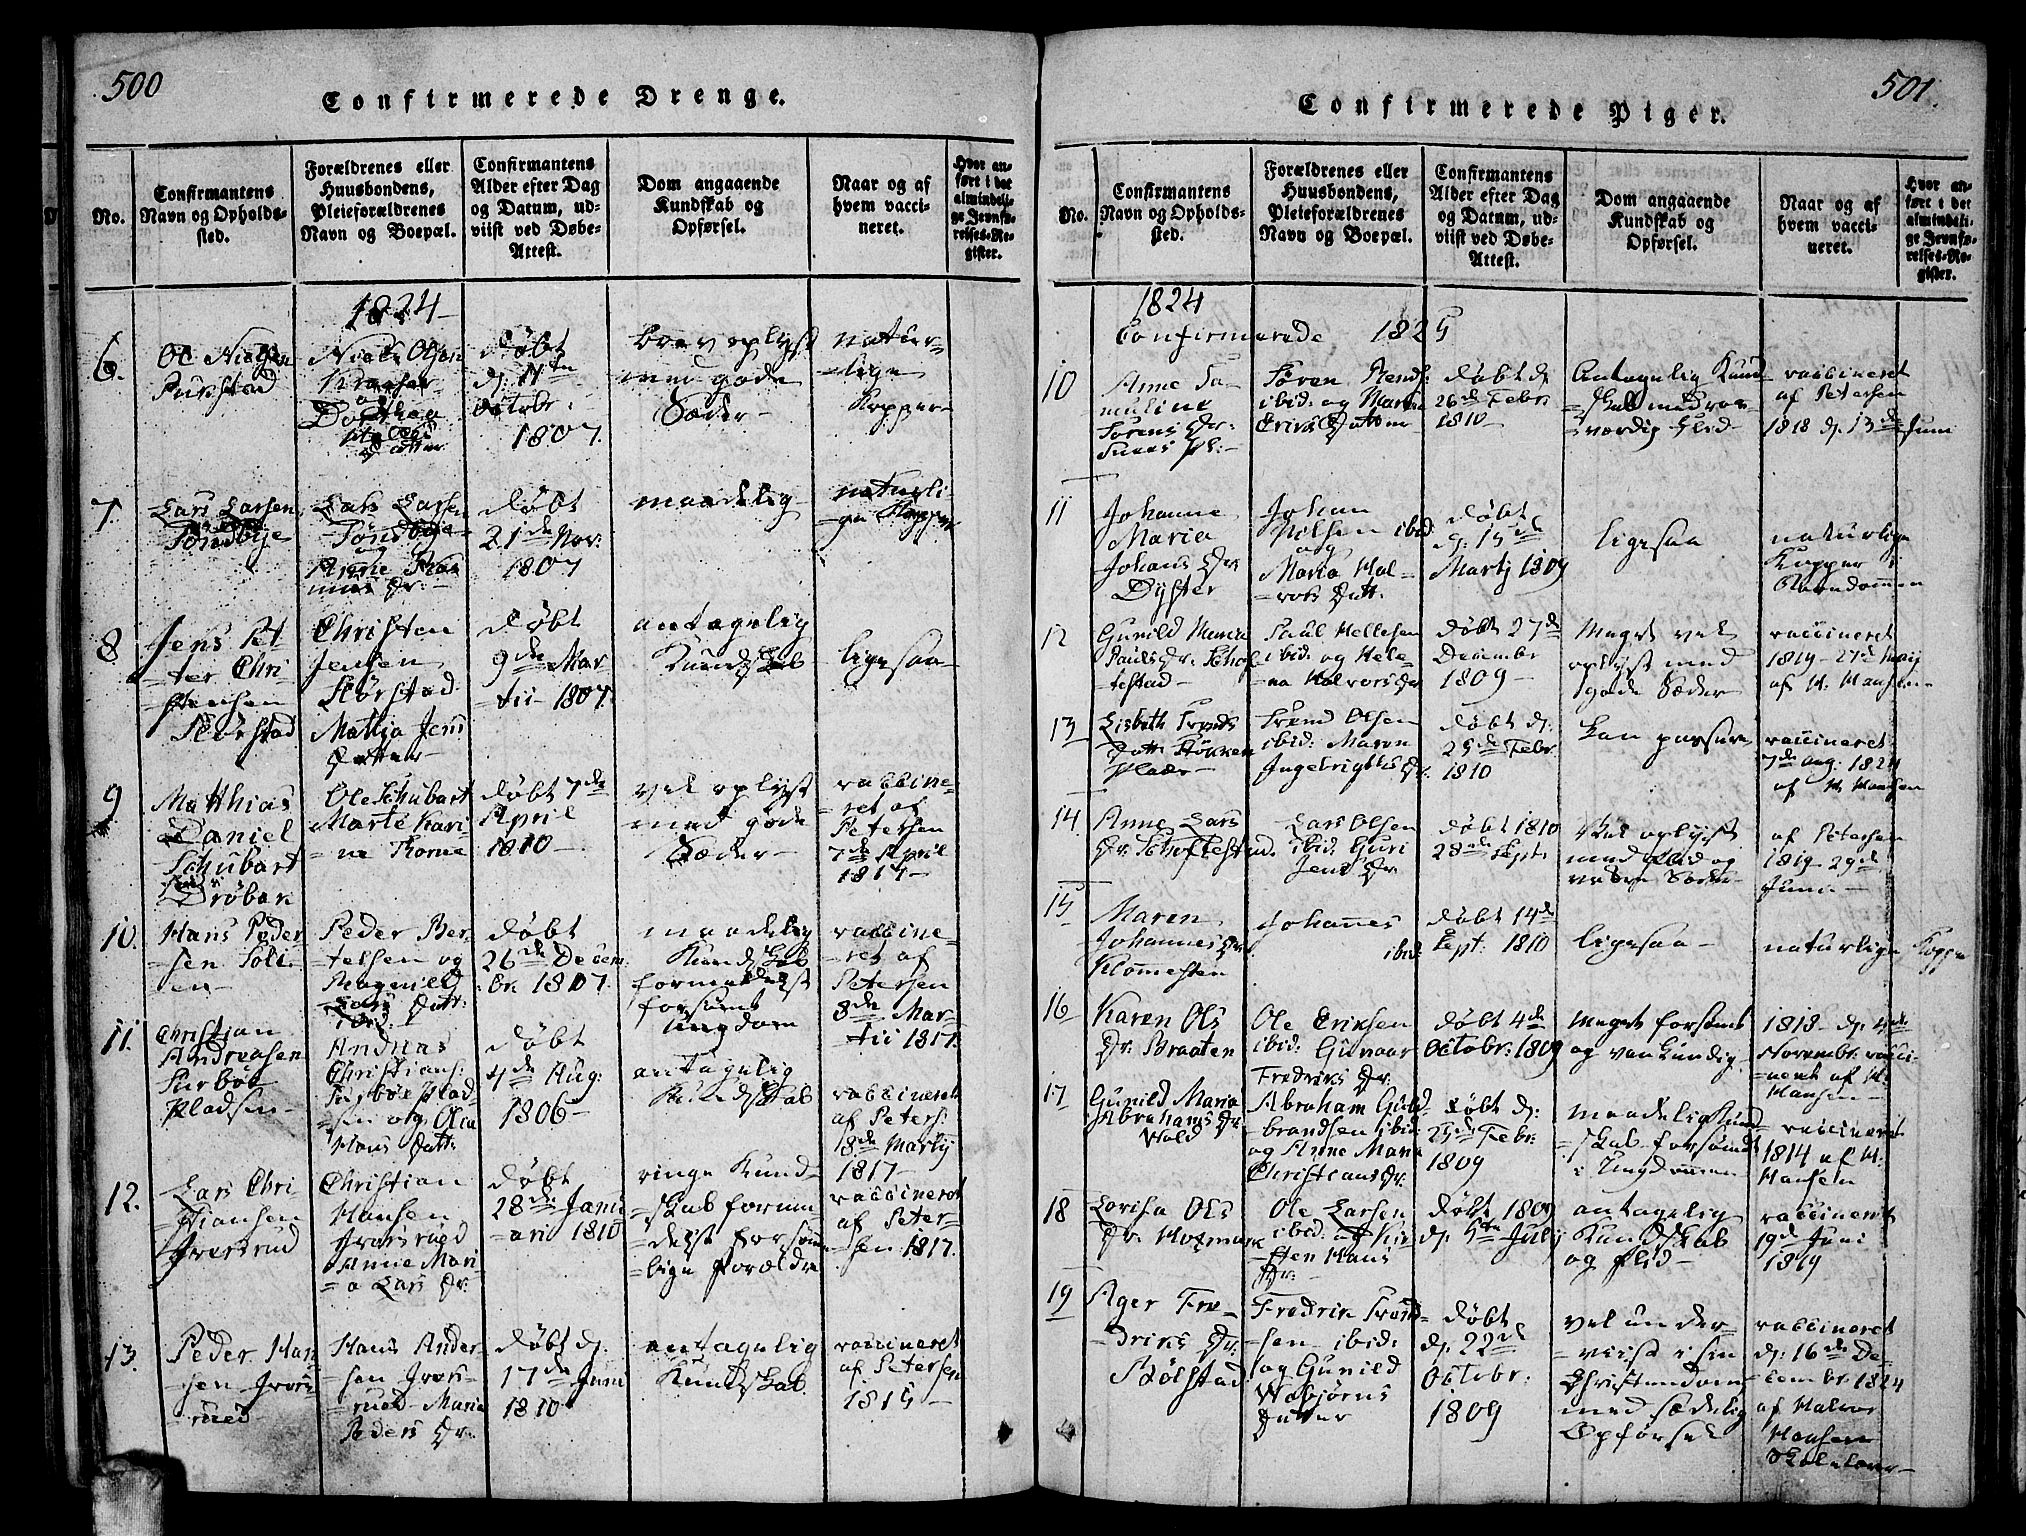 500
Confirmerede Drenge.
No.
Confirmantens
Navn og Opholds-
sted.
Forældrenes eller
Huusbondens,
Pleieforældrenes
Navn og Boepæl.
Confirmantens
Alder efter Dag
og Datum, ud-
viist ved Døbe-
Attest.
Dom angaaende
Kundskab og
Opførsel.
Naar og af
hvem vacci-
neret.
Hvor an-
ført i det
almindeli-
ge Jevnfø-
relses-Re-
gister.
1824
6.
Ole Nielsen
Niels Olsen
og
Dorthea
Datter
Døbt
d: 11te
Octobr:
1807.
brav oplyst
med gode
Sæder
natur-
lige
Kopper
7.
Lars Larsen
Tøndbye
Lars Larsen
Tøndbye
og
Anne Ras
mus Dr:
Døbt
21de Nov:
1807
maadelig
naturli-
ge Kopper
8
Jens Pet
ter Chri-
stensen
Størstad
Christen
Jensen
Størstad
Mathia Jens
Datter
Døbt
9de Mar
tii 1807.
antagelig
Kundskab
ligesaa
9
Matthias
Daniel
Schubart
Drøbak
Ole Schubart
Marte Kari-
ne Thorne
Døbt 7de
April
1810
vel oplyst
med gode
Sæder
vaccine-
ret af
Petersen
7de April
1817
10.
Hans Peder
sen Soli-
en
Peder Ber-
telsen og
Magnild
Lars Datt:
ibid.
Døbt
26de Decem
br. 1807.
maadelig
Kundskab
formedelst
forsømt
Ungdom
vaccine-
ret af
Petersen
8de Mar-
tii 1817.
11.
Christian
Andreasen
Surbøe
Pladsen
Andreas
Christians:
Surbøe Plad-
sen og Olea
Hans Datt:
Døbt
4de Aug:
1806
antagelig
Kundskab
vaccineret
af Peters:
18de Martij
1817
12.
Lars Chri-
stiansen
Iversrud
Christian
Hansen
Iversrued
Anne Mari-
a Lars Dr.
Døbt
28de Janu
ari 1810
ringe Kund-
skab forme-
delst forsøm-
lige Forældre
vaccineret
af Peter-
sen 1817.
13.
Peder Han
sen Ivers
rued
Hans Ander-
sen Ivers-
rued Maria
Peders Dr.
Døbt d.
17de Juni
1810
antagelig
Kundskab.
vaccineret
af Petersen
1815
501.
Confirmerede Piger.
No.
Confirmantens
Navn og Opholds-
sted.
Forældrenes eller
Huusbondens,
Pleieforældrenes
Navn og Boepæl.
Confirmantens
Alder efter Dag
og Datum, ud-
viist ved Døbe-
Attest.
Dom angaaende
Kundskab og
Opførsel.
Naar og af
hvem vacci-
neret.
Hvor an-
ført i det
almindeli-
ge Jevnfø-
relses-Re-
gister.
1824
Confirmerede 1825
10
Anne Pa-
muline
Sørens Dr:
Søren
ibid: og Maren
Eriks Datter
Døbt d.
26de Febr:
1810
Antagelig Kund-
skab med roes-
værdig Flid
vaccineret
af Petersen
1818 d. 13de Juni
11
Johanne
Maria
Johans Dr:
Dyster
Johan
Nilsen ibid:
og
Maria Hal-
vors Datt:
Døbt
d: 15de
Martij 1809
ligesaa
naturlige
Kopper i
Barndommen
12
Gunild Maria
Pauls Dr. Schof-
testad
Paul Hellesen
ibid: og Hele-
na Halvors Dr
Døbt 27de
December
1809
Meget vel
oplyst med
gode Sæder
vaccineret
1819 27de Maij
af H: Hansen
13
Lisbeth Tronds
Datt: Støkken
Plads
Trond Olsen
ibid: Maren
Ingebrigts Dr.
Døbt d:
25de Febr:
1810
kan passere
vaccineret
7de Aug: 1824
af H Hansen
14.
Anne Lars
Dr. Schoftestad.
Lars Olsen
ibid: Guri
Jens Dr
Døbt 1810
28de Sept:
Vel oplyst
med Flid og
Sæder
af Petersen
1819 29de
Juni
15
Maren
Johannes Dr.
Klommesten
Johannes
ibid:
Døbt 14de
Sept: 1810
ligesaa
naturlige Kopper
16
Karen Ols
Dr: Braaten
Ole Eriksen
ibid: Gunaar
Fredriks Dr:
Døbt 4de
Octobr: 1809
Meget forsømt
og vankundig
1818 d. 4de
Novembr: vacci-
neret af H:
Hansen
17
Gunild Maria
Abrahams Dr.
Wold
Abraham Guld-
brandsen ibid:
og Anne Maria
Christians Dr.
Døbt d:
25de Febr:
1809
maadelig Kund-
skab forsømt
i Ungdommen
vaccineret
1814 af H:
Hansen
18
Lovisa Ols
Dr. Holmark
Ole Larsen
ibid: og Kir-
sten Hans
Dr:
Døbt 1809
d. 5te Julij
antagelig
Kundskab
og Flid
vaccineret
19de Juni
1819
19
Ager Fre-
driks Dr:
Bølstad
Fredrik Trond-
sen ibid:
og Gunild
Wæbjørns
Datter
Døbt
d: 22de
Octobr:
1809
vel under-
viist i sin
Christendom
med sædelig
Opførsel
vaccineret
d: 16de De-
cembr. 1824
af Halvor
Hansen
Skoleholder